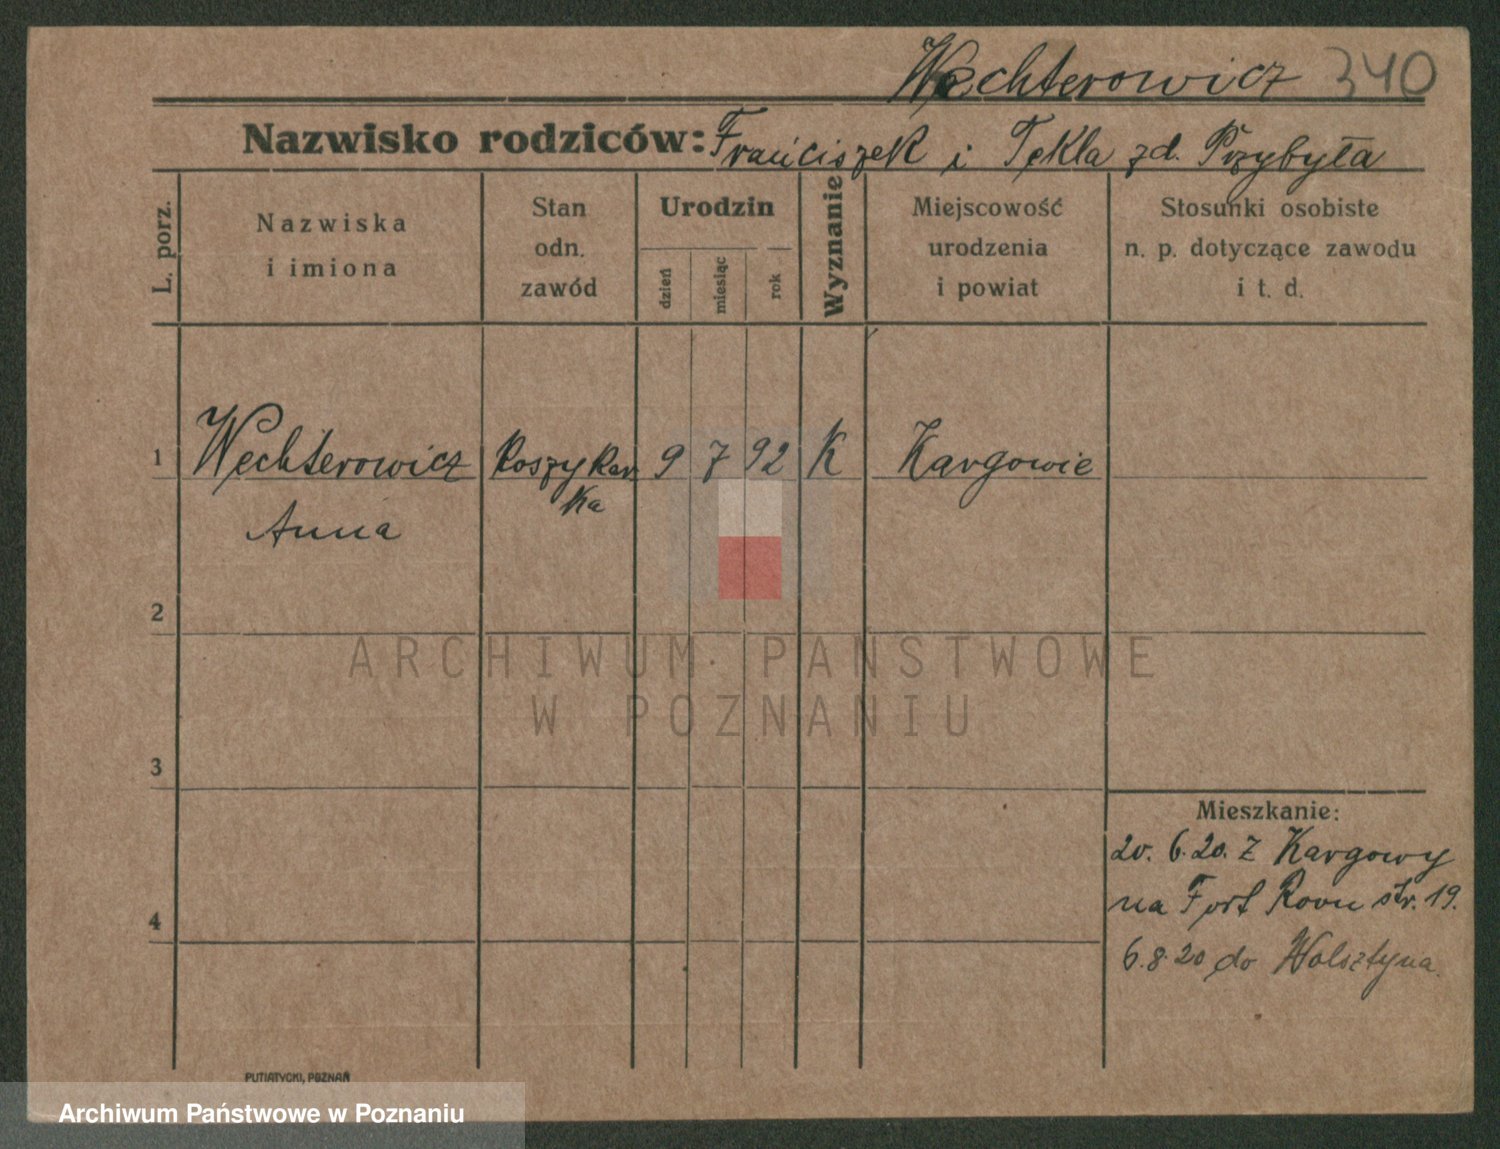 Wechterowicz 340
Nazwisko rodziców: Franciszek i Tekla zd. Przybyła
L. porz.
Nazwiska
i imiona
Stan
odn.
zawód
Urodzin
dzień
miesiąc
rok
Wyznanie
Miejscowość
urodzenia
i powiat
Stosunki osobiste
n. p. dotyczące zawodu
i t. d.
1 Wechterowicz Koszykar 9 7 92 K Kargowie
ka
Anna
2
ARCHIWUM PAŃSTWOWE
W POZNANIU
3
Mieszkanie:
20. 6. 20. z Kargowy
na Fort Roon str. 19.
4
6. 8. 20 do Wolsztyna.
PUTIATYCKI, POZNAŃ
Archiwum Państwowe w Poznaniu